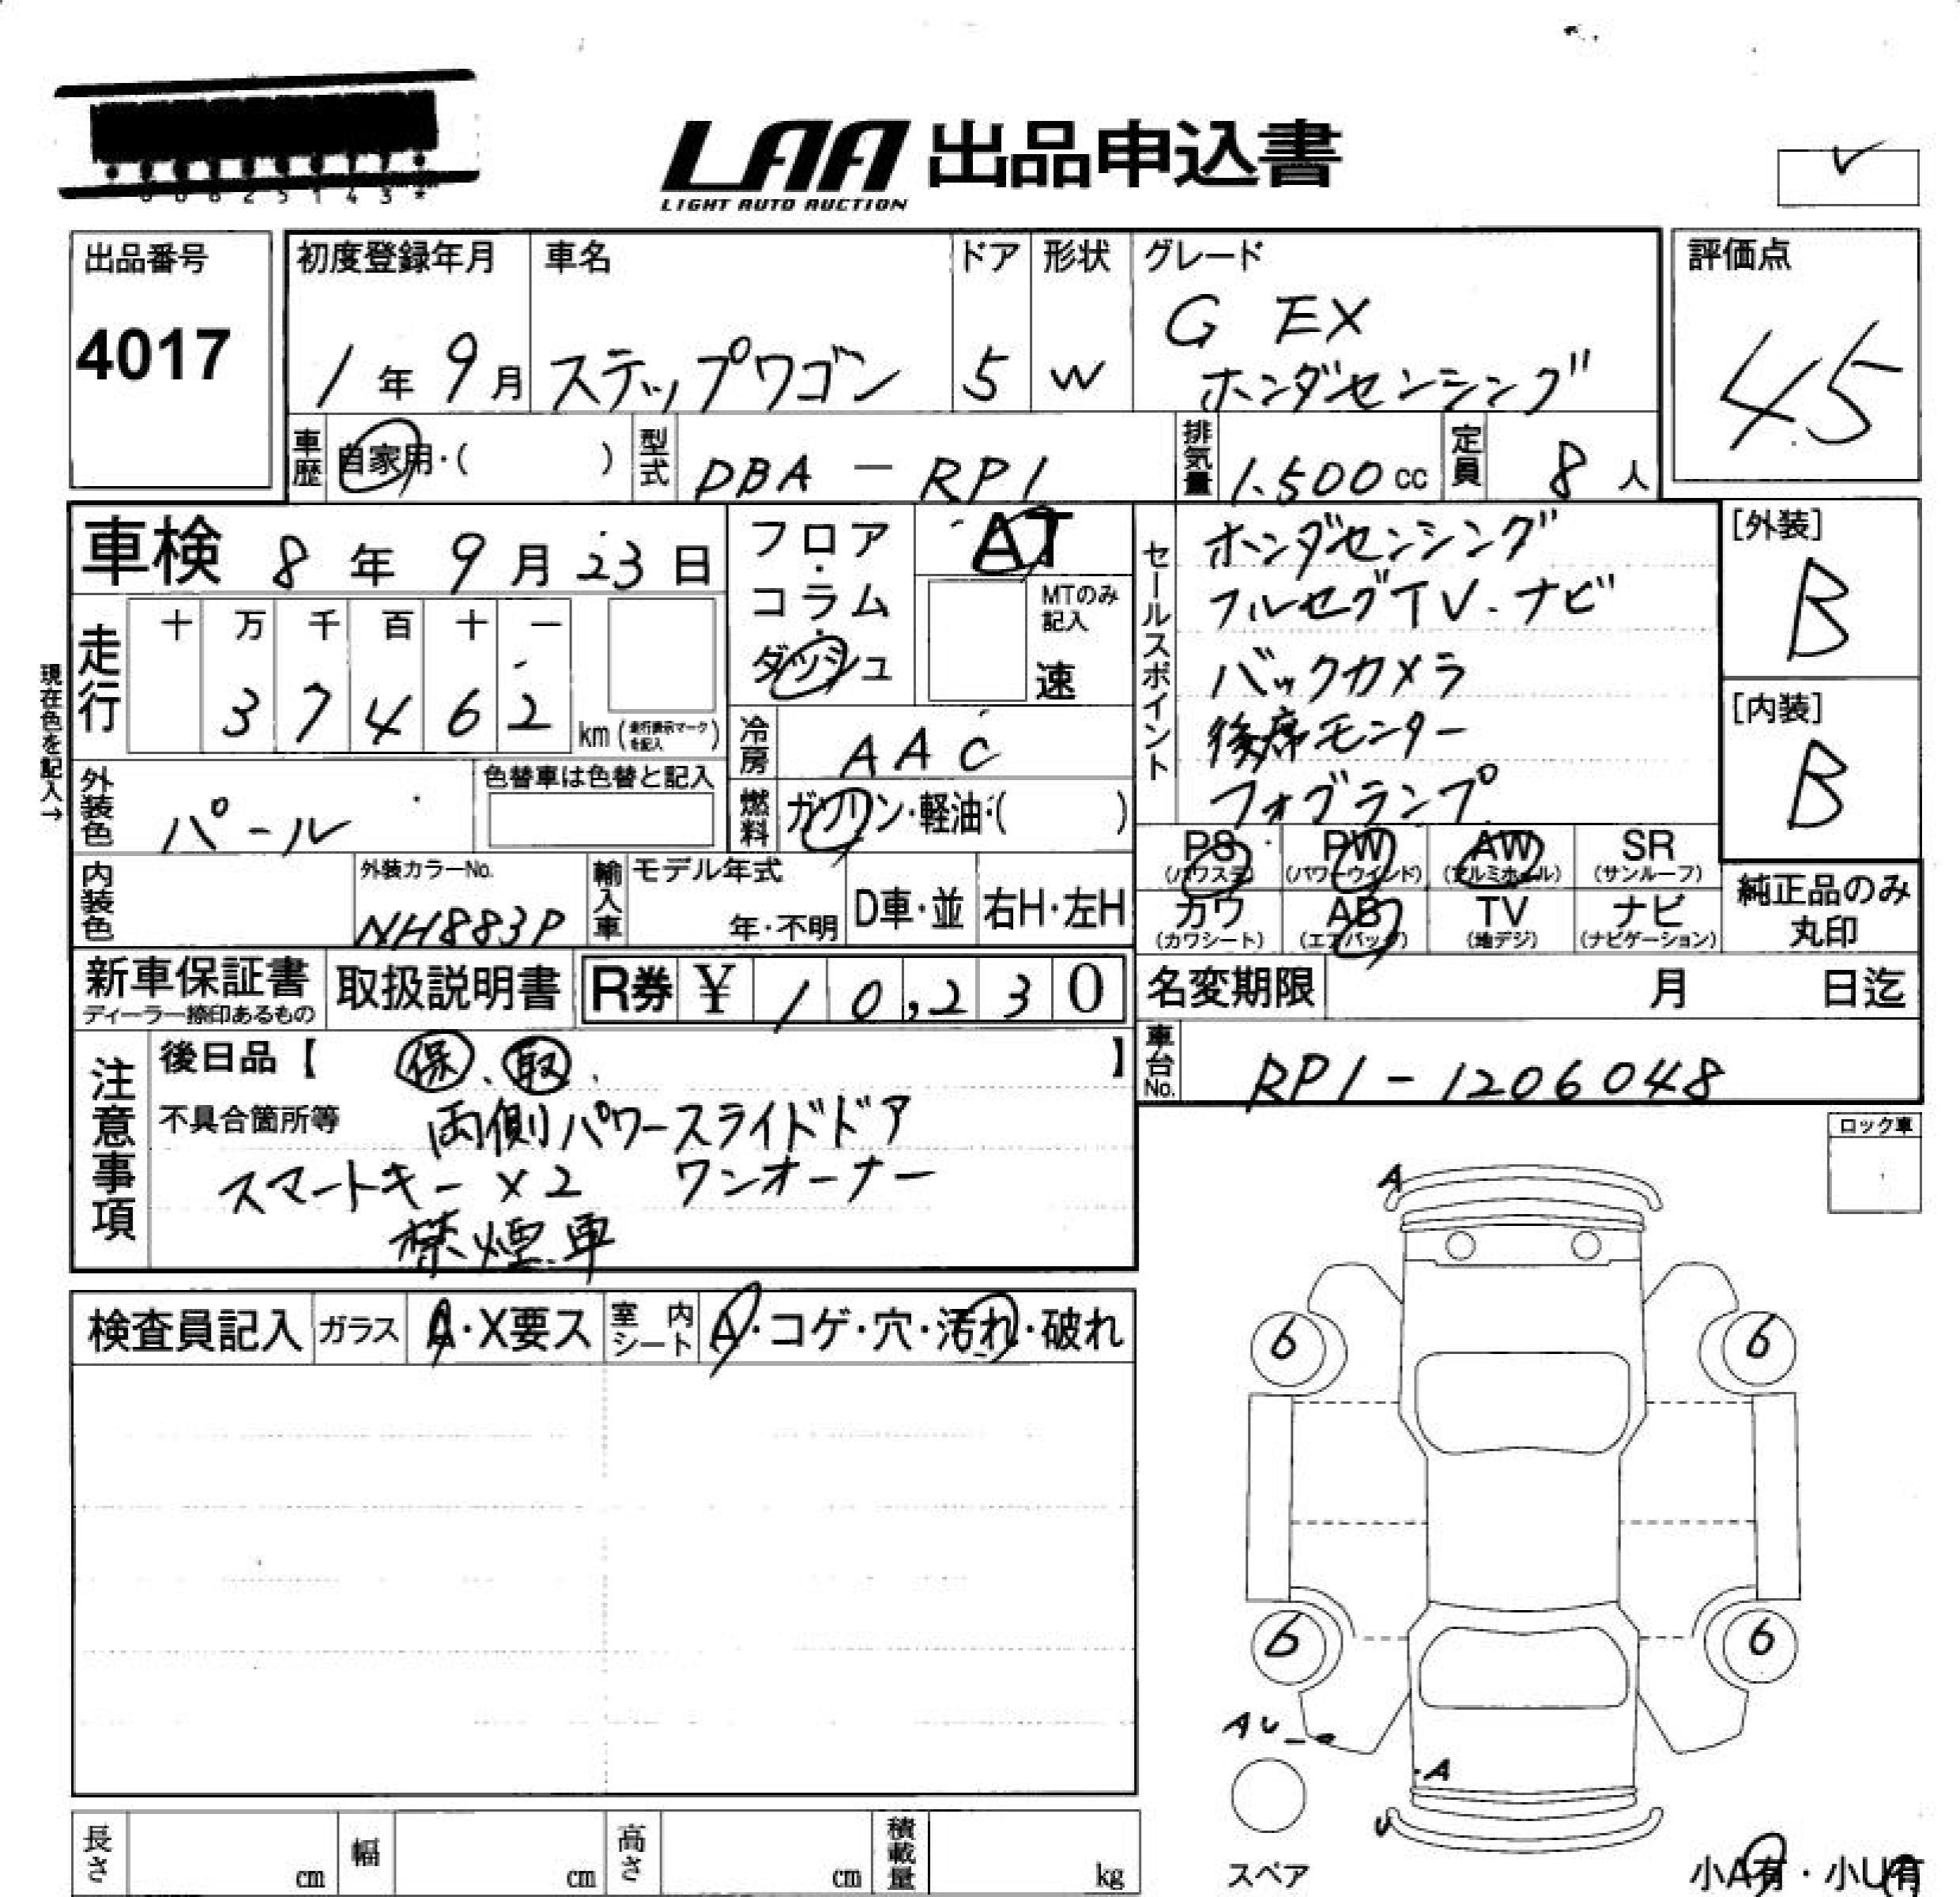 LAA 出品申込書
LIGHT AUTO AUCTION
出品番号
4017
初度登録年月
1年9月
車名
ステップワゴン
ドア
5
形状
W
グレード
G EX
ホンダセンシング
評価点
45
車歴
自家用・( )
型式
DBA-RP1
排気量
1.500cc
定員
8人
車検 8年9月23日
フロア・コラム・ダッシュ
AT
MTのみ記入
速
走行
十 万 千 百 十 一
3 7 4 6 2
km(走行表示マークを記入)
現在色を記入→
冷房
AAC
燃料
ガソリン・軽油・( )
外装色
パール
色替車は色替と記入
内装色
外装カラーNo.
NH883P
輸入車
モデル年式
年・不明
D車・並
右H・左H
セールスポイント
ホンダセンシング
フルセグTV.ナビ
バックカメラ
後席モニター
フォグランプ
[外装]
B
[内装]
B
PS PW AW SR
(パワステ) (パワーウインド) (アルミホイール) (サンルーフ)
カワ AB TV ナビ
(カワシート) (エアバッグ) (地デジ) (ナビゲーション)
純正品のみ
丸印
新車保証書
ディーラー捺印あるもの
取扱説明書
R券 ¥ 10,230
名変期限 月 日迄
車台No.
RP1-1206048
注意事項
後日品【 保、取、 】
不具合箇所等 両側パワースライドドア
スマートキー×2 ワンオーナー
禁煙車
ロック車
検査員記入 ガラス A・X要ス 室内シート A・コゲ・穴・汚れ・破れ
A
6 6
6 6
AU
A
U
スペア
小A有・小U有
長さ cm 幅 cm 高さ cm 積載量 kg